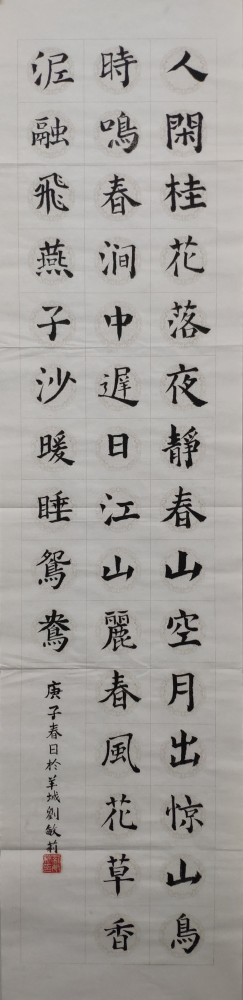 人閑桂花落夜靜春山空月出惊山鳥
時鳴春澗中遲日江山麗春風花草香
泥融飛燕子沙暖睡鴛鴦
庚子春日於羊城劉敏莉